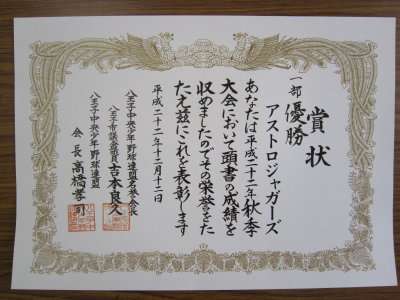 賞状
一部
優勝
アストロジャガーズ
あなたは平成二十二年秋季
大会において頭書の成績を
収めましたのでその栄誉をた
たえ茲にこれを表彰します
平成二十二年十二月十二日
八王子中央少年野球連盟名誉会長
八王子市議会議員 吉本良久
八王子中央少年野球連盟
会長 高橋孝司